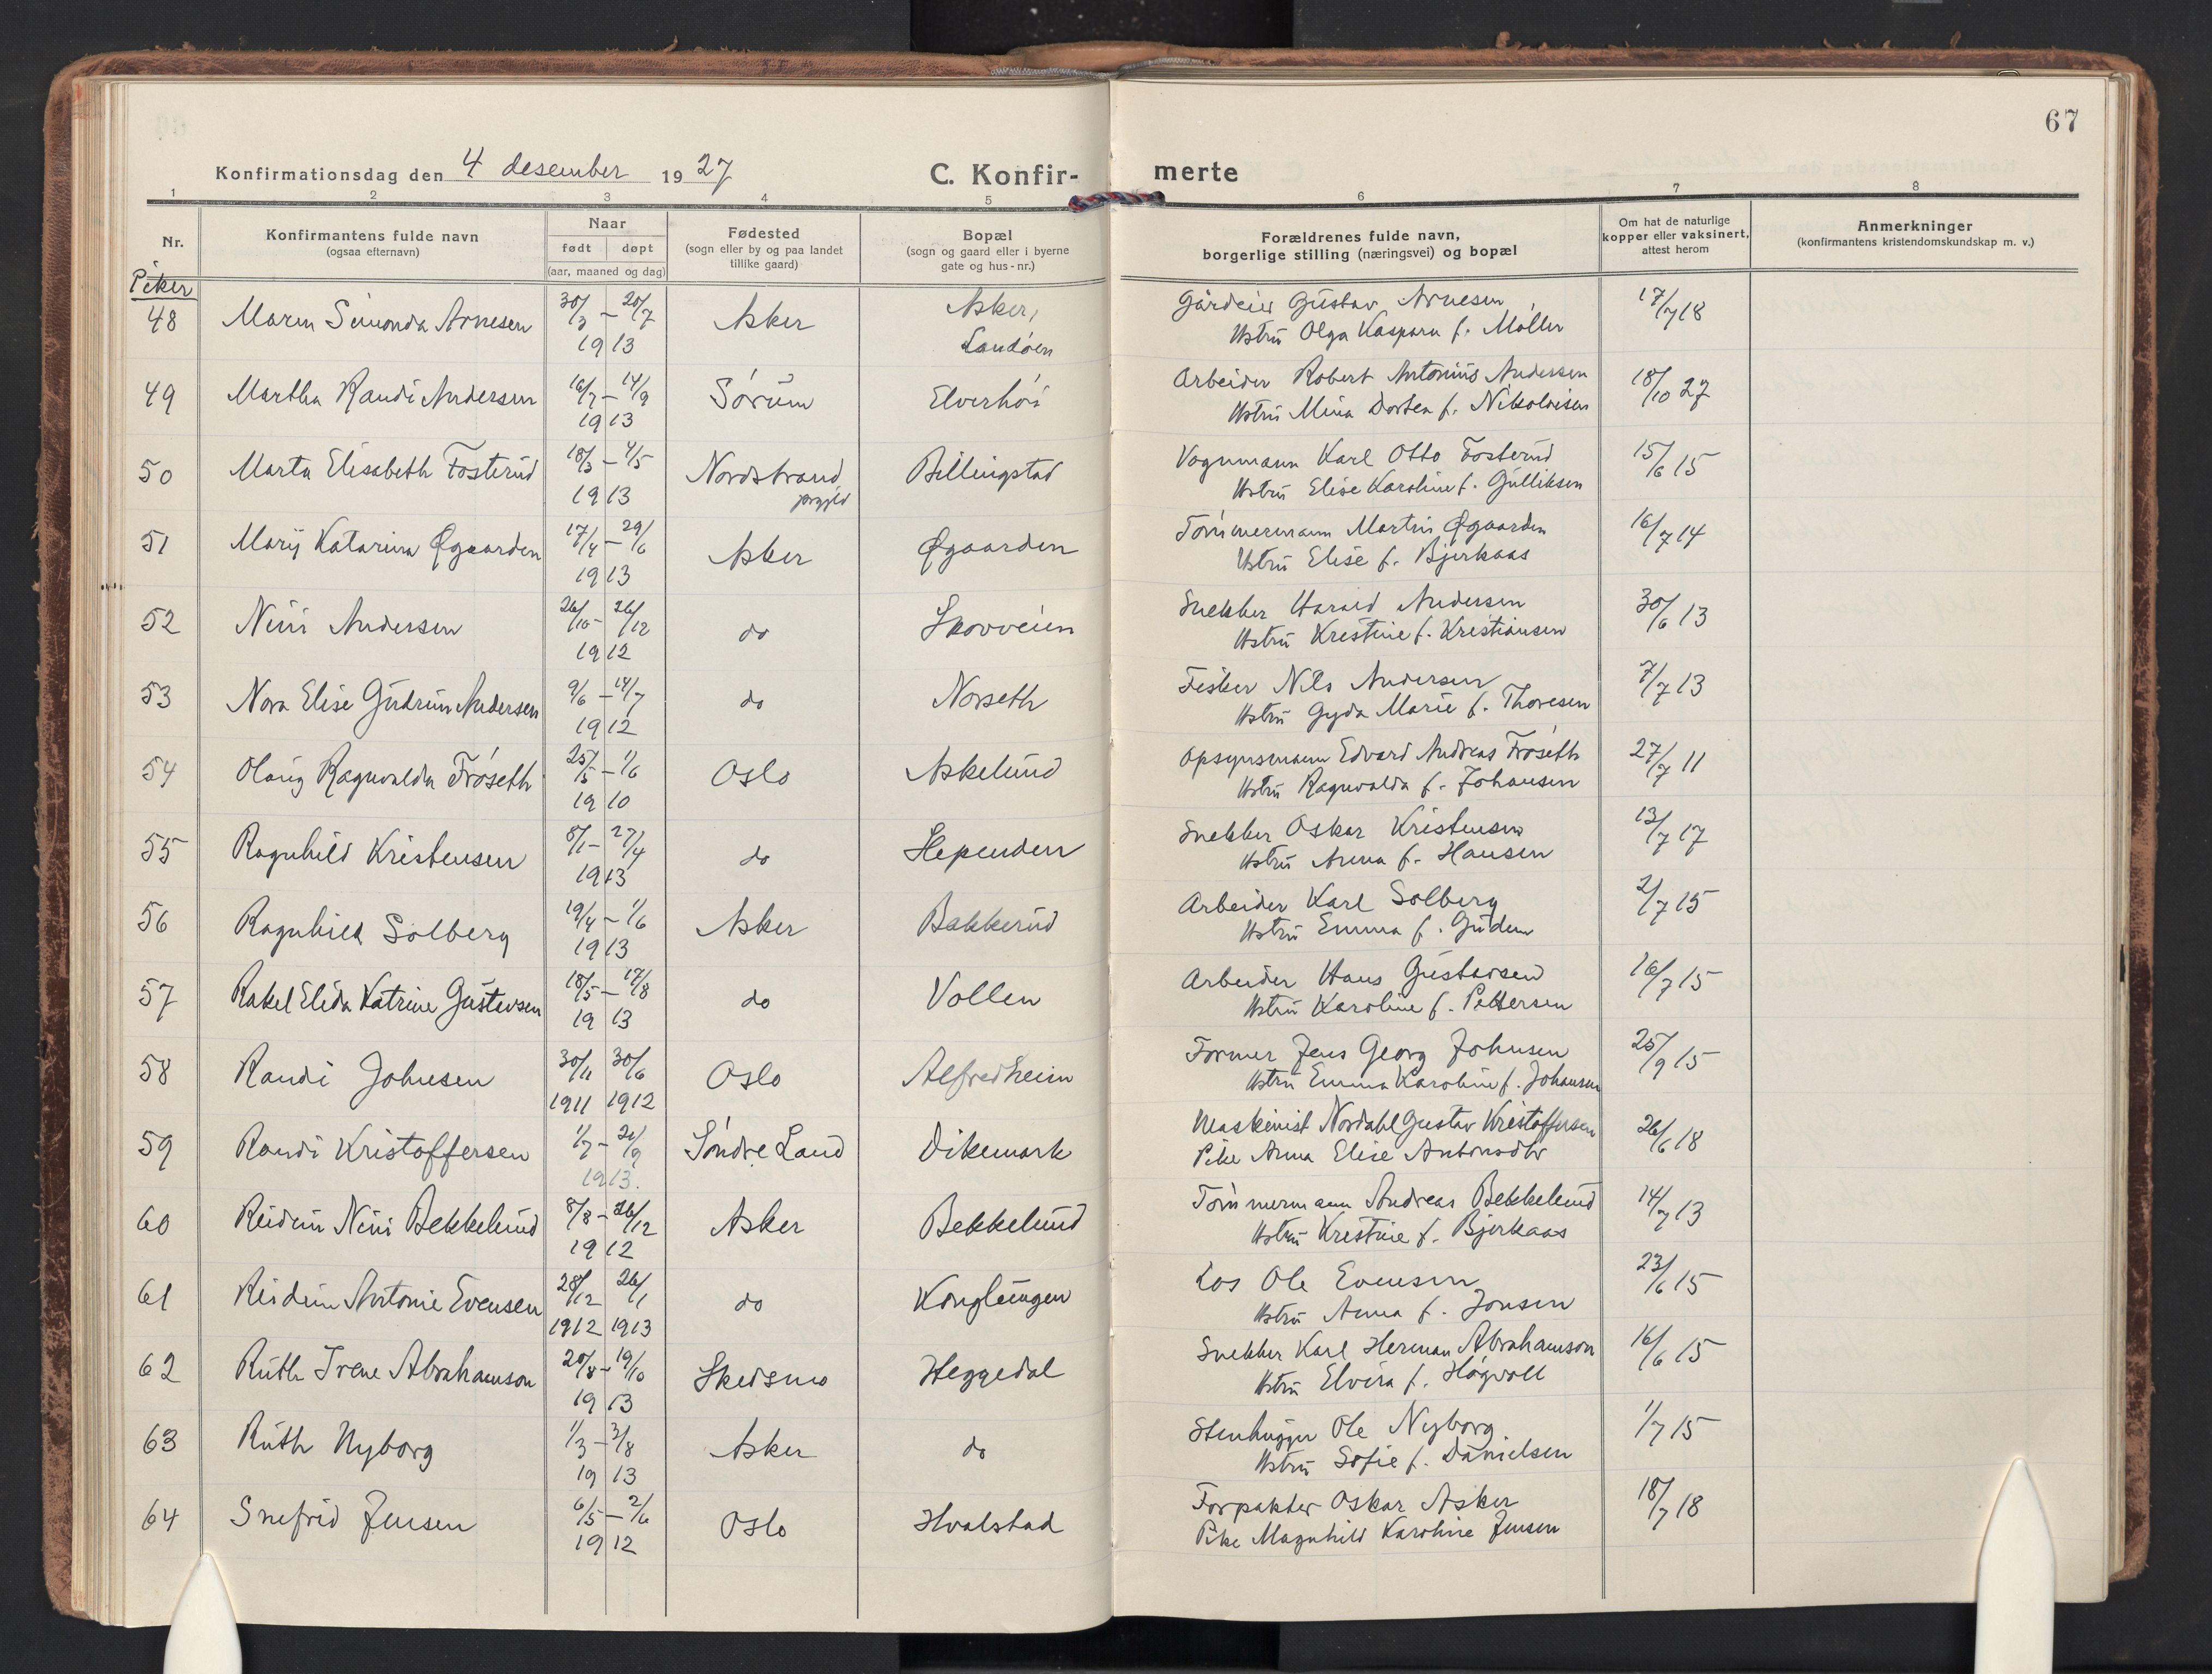 67
Konfirmationsdag den 4 desember 1927
C. Konfir- merte
1 2 3 4 5 6 7 8
Nr.
Konfirmantens fulde navn
(ogsaa efternavn)
Naar
født døpt
(aar, maaned og dag)
Fødested
(sogn eller by og paa landet
tillike gaard)
Bopæl
(sogn og gaard eller i byerne
gate og hus-nr.)
Forældrenes fulde navn,
borgerlige stilling (næringsvei) og bopæl
Om hat de naturlige
kopper eller vaksinert,
attest herom
Anmerkninger
(konfirmantens kristendomskundskap m. v.)
Piker
48 Maren Simonda Arnesen 30/3 – 20/7 Asker Asker, Gårdeier Gustav Arnesen 17/7 18
1913 Landøen Hstru Olga Kaspara f. Møller
49 Martha Randi Andersen 16/7 – 14/9 Sørum Elverhøi Arbeider Robert Antonius Andersen 18/10 27
1913 Hstru Mina Dortea f. Nikolaisen
50 Marta Elisabeth Fosterud 18/3 – 4/5 Nordstrand Billingstad Vognmann Karl Otto Fosterud 15/6 15
1913 prgjld Hstru Elise Karoline f. Gulliksen
51 Mary Katarina Øgaarden 17/4 – 29/6 Asker Øgaarden Tømmermann Martin Øgaarden 16/7 14
1913 Hstru Elise f. Bjerkaas
52 Nini Andersen 26/10 – 26/12 do Skovveien Snekker Harald Andersen 30/6 13
1912 Hstru Kristine f. Kristiansen
53 Nora Elise Gudrun Andersen 9/6 – 14/7 do Norseth Fisker Nils Andersen 7/7 13
1912 Hstru Gyda Marie f. Thoresen
54 Olaug Ragnvalda Frøseth 25/5 – 1/6 Oslo Askelund Opsynsmann Edvard Andreas Frøseth 27/7 11
1910 Hstru Ragnvalda f. Johansen
55 Ragnhild Kristensen 8/1 – 27/4 do Slependen Snekker Oskar Kristensen 13/7 17
1913 Hstru Anna f. Hansen
56 Ragnhild Solberg 19/4 – 1/6 Asker Bakkerud Arbeider Karl Solberg 2/7 15
1913 Hstru Emma f. Gudem
57 Rakel Elida Katrine Gustavsen 18/5 – 17/8 do Vollen Arbeider Hans Gustavsen 16/7 15
1913 Hstru Karoline f. Pettersen
58 Randi Johnsen 30/11 30/6 Oslo Alfredheim Former Jens Georg Johnsen 25/9 15
1911 1912 Hstru Emma Karoline f. Johansen
59 Randi Kristoffersen 1/7 – 21/9 Søndre Land Dikemark Maskinist Nordahl Gustav Kristoffersen 26/6 18
1913. Pike Anna Elise Antonsdtr
60 Reidun Nini Bekkelund 8/8 – 26/12 Asker Bekkelund Tømmermann Andreas Bekkelund 14/7 13
1912 Hstru Kristine f. Bjerkaas
61 Reidun Antonie Evensen 28/12 26/1 do Konglungen Los Ole Evensen 23/6 15
1912 1913 Hstru Anna f. Jonsen
62 Ruth Irene Abrahamson 20/8 – 19/10 Skedsmo Heggedal Snekker Karl Herman Abrahamson 16/6 15
1913 Hstru Elvira f. Høgvoll
63 Ruth Nyborg 1/3 – 3/8 Asker do Stenhugger Ole Nyborg 1/7 15
1913 Hstru Sofie f. Danielsen
64 Snefrid Jensen 6/5 – 2/6 Oslo Hvalstad Forpakter Oskar Asker 18/7 18
1912 Pike Magnhild Karoline Jensen